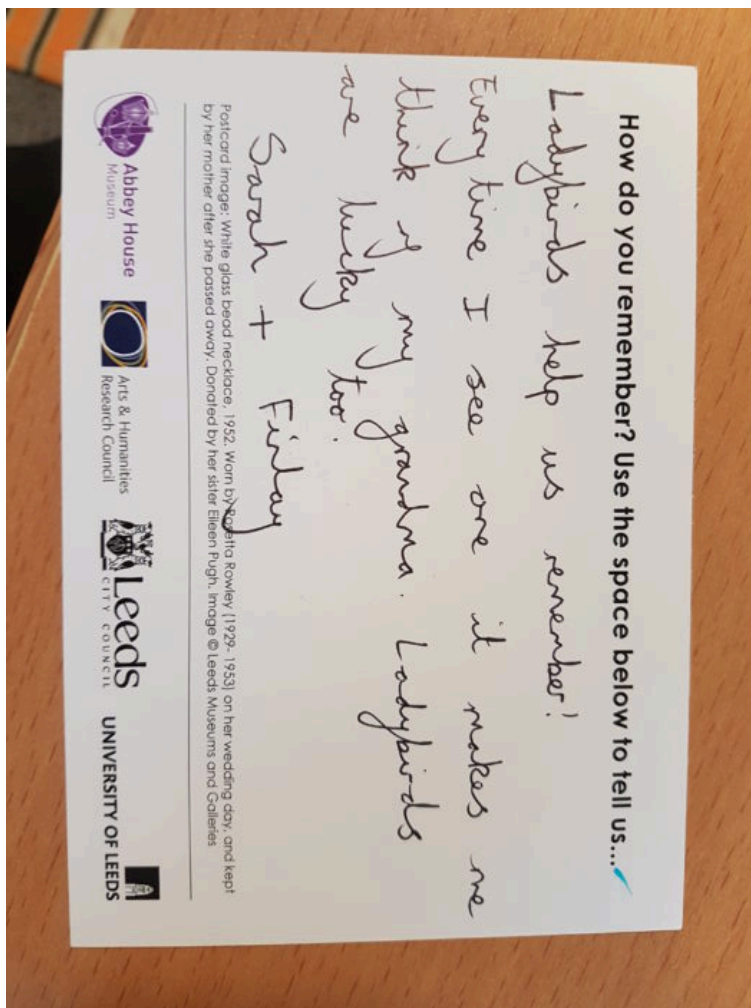 How do you remember? Use the space below to tell us...
Ladybirds help us remember!
Every time I see one it makes me
think of my grandma. Ladybirds
are lucky too!
Sarah + Finlay
Postcard image: White glass bead necklace, 1952. Worn by Rosetta Rowley (1929- 1953) on her wedding day, and kept
by her mother after she passed away. Donated by her sister Eileen Pugh. Image © Leeds Museums and Galleries
Abbey House
Museum
Arts & Humanities
Research Council
Leeds
CITY COUNCIL
UNIVERSITY OF LEEDS